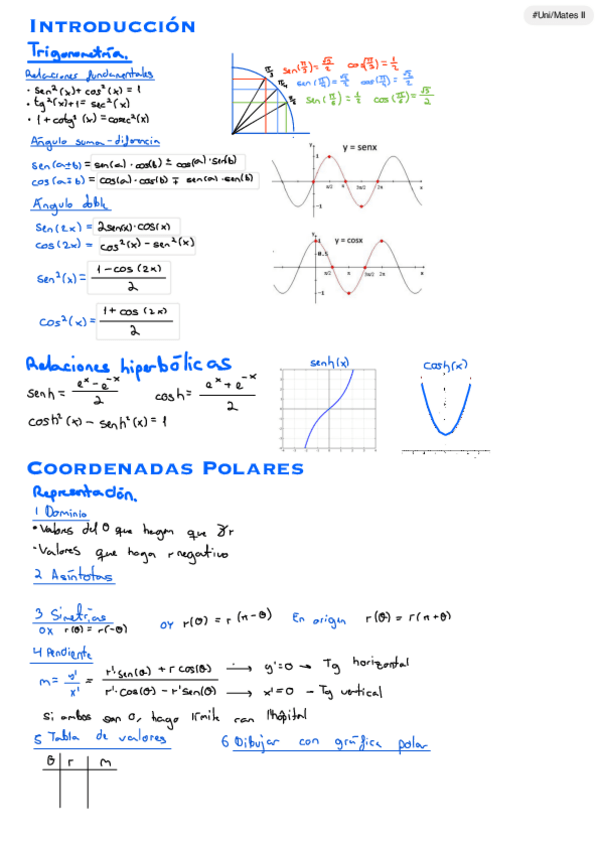 #Uni/Mates II
INTRODUCCIÓN
Trigonometría.
Relaciones fundamentales
· sen²(x) + cos²(x) = 1
· tg²(x) + 1 = sec²(x)
· 1 + cotg²(x) = cosec²(x)
π/3
π/4
π/6
sen(π/3) = √3/2 cos(π/3) = 1/2
sen(π/4) = √2/2 cos(π/4) = √2/2
sen(π/6) = 1/2 cos(π/6) = √3/2
Ángulo suma - diferencia
sen(a±b) = sen(a) · cos(b) ± cos(a) · sen(b)
cos(a±b) = cos(a) · cos(b) ∓ sen(a) · sen(b)
y = senx
Ángulo doble
sen(2x) = 2sen(x) · cos(x)
cos(2x) = cos²(x) - sen²(x)
y = cosx
sen²(x) = (1 - cos(2x))/2
cos²(x) = (1 + cos(2x))/2
Relaciones hiperbólicas
senh = (eˣ - e⁻ˣ)/2 cosh = (eˣ + e⁻ˣ)/2
cosh²(x) - senh²(x) = 1
senh(x)
cosh(x)
COORDENADAS POLARES
Representación.
1 Dominio
· Valores del θ que hagan que ∃r
· Valores que haga r negativo
2 Asíntotas
3 Simetrías
OX r(θ) = r(-θ) OY r(θ) = r(π-θ) En origen r(θ) = r(π+θ)
4 Pendiente
m = y'/x' = (r'·sen(θ) + r cos(θ))/(r'·cos(θ) - r'sen(θ))
→ y'=0 → Tg horizontal
→ x'=0 → Tg vertical
Si ambos son 0, hago límite con l'hôpital
5 Tabla de valores 6 Dibujar con gráfica polar
θ r m